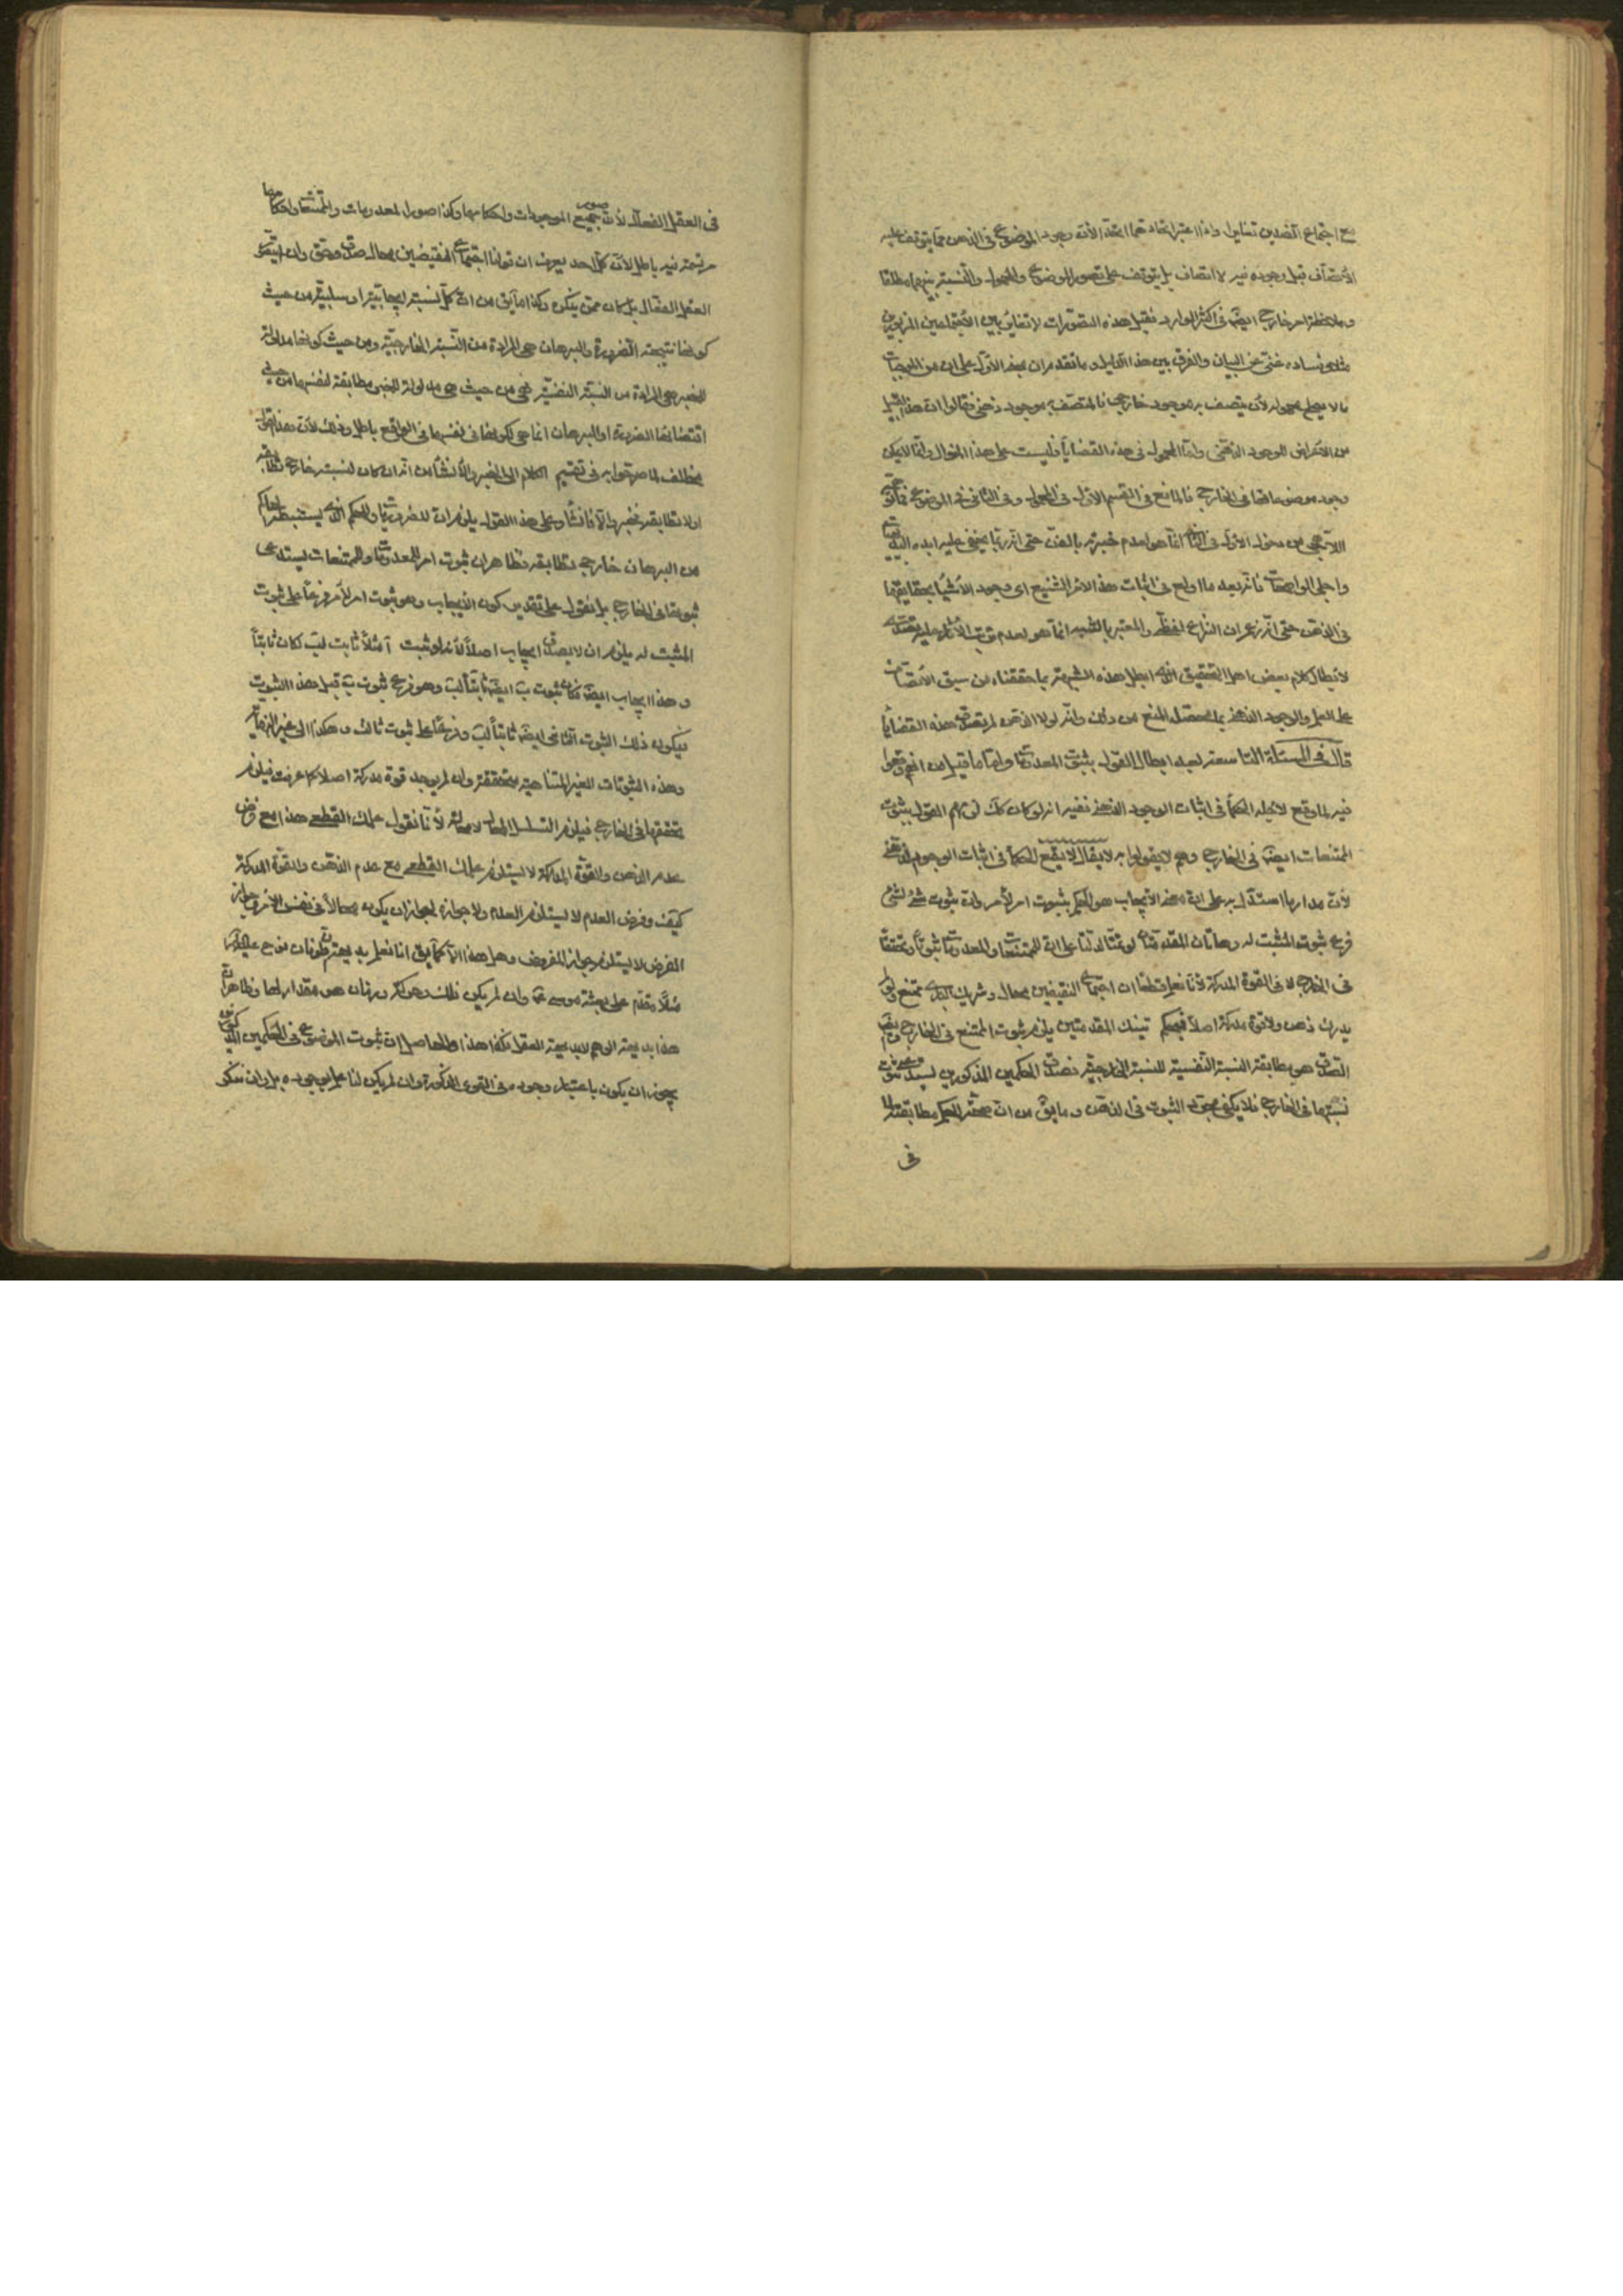 مع اجتماع الضدين تغاير واذا اعتبر اتحادهما اتحد الأن وجود الموضوع فى الذهن مما يتوقف عليه
الأتصاف قبل وجوده فيه لا اتصاف بل يتوقف على تصور الموضوع والمحمول والنسبة بينهما مطلقا
وملاحظة امر خارج ايضا فى اكثر الموارد فقبل هذه التصورات لا تغاير بين الأجتماعين المزبورين
فساده غنى عن البيان والفرق بين هذا الدليل وما تقدم ان مبنى الأول على ان من الموجبات
ما لا يصلح محموله لأن يتصف به موجود خارجى فالمتصف به موجود ذهنى
من الأعراض للموجود الذهنى واما المحمول فى هذه القضايا فليست على هذا المنوال وانما لا يمكن
وجود موضوعاتها فى الخارج فالمانع فى القسم الأول فى المحمول وفى الثانى فى الموضوع
انما هو لعدم خبرته بالفن حتى انه ربما يخفى عليه ابده
واجلى الواضحات فانه بعد ما اولع فى اثبات هذا الامر الشنيع اى وجود الأشياء بحقايقها
فى الذهن حتى انه زعم ان النزاع لفظى
لأبطال كلام بعض اهل التحقيق الذى ابطل هذه الشبهة بما حققناه من سبق الأتصاف
على العلم والوجود الذهنى بما محصله المنع من ذلك وانه لولا الذهن لم يصدق هذه القضايا
قال فى المسئلة التاسعة لعبد ابطال القول بثبوت المعدومات واما ما قيل من انهم وقعوا
فيه لما وقع لأجله الحكما فى اثبات الوجود الذهنى ففيه انه لو كان كك لزمهم القول بثبوت
الممتنعات ايضا فى الخارج وهم لا يقولوا به لا يقال لا يقع الحكما فى اثبات الوجود الذهنى
لأن مدار ما استدل به على ان معنى الأيجاب هو الحكم بثبوت امر لأمر وان ثبوت شئ لشئ
فرع ثبوت المثبت له وهاتان المقدمتان لو تمتا لدلتا على ان للممتنعات والمعدومات ثبوتا وتحققا
فى الخارج لا فى القوة المدركة لأنا نعلم قطعا ان اجتماع النقيضين محال وشريك البارى ممتنع ولو لم
يدرك ذهن ولا قوة مدركة اصلا فبحكم تينك المقدمتين يلزم ثبوت الممتنع فى الخارج
الصدق هو مطابقة النسبة النفسية للنسبة الخارجية فصدق الحكمين المذكورين يستدعى ثبوت
نسبتهما فى الخارج فلا يكفى مجرد الثبوت فى الذهن وما يق من ان صحة الحكم مطابقته لما
فى
فى العقل الفعال لأن صور جميع الموجودات واحكامها وكذا صور المعدومات والممتنعات واحكامها
مرتسمة فيه باطل لأن كل احد يعرف ان قولنا اجتماع النقيضين محال صدق وحق وان لم يتصور
العقل الفعال بل كان ممن ينكره وكذا ما يق من ان كل نسبة ايجابية او سلبية من حيث
كونها نتيجة الضرورة والبرهان هى المرادة من النسبة الخارجية ومن حيث كونها مدلولة
للخبر هى المرادة من النسبة النفسية فهى من حيث هى مدلولة للخبر مطابقة لنفسها من حيث
اقتضائها الضرورة او البرهان انما هى لكونها فى نفسها فى الواقع باطل وذلك لأن هذا القول
مخالف لما صرحوا به فى تقسيم الكلام الى الخبر والأنشاء من انه ان كان لنسبته خارج تطابقه
اولا تطابقه فخبر والا فانشاء وعلى هذا القول يلزم ان للضروريات وللحكم الذى يستنبط الحاكم
من البرهان خارجى تطابقه فظاهر ان ثبوت امر للمعدومات والممتنعات يستدعى
ثبوتها فى الخارج بل نقول على تقدير كون الأيجاب وهو ثبوت امر لأمر فرعا على ثبوت
المثبت له يلزم ان لا يصدق ايجاب اصلا لأنه لو ثبت آ مثلا ثابت لب لكان ثابتا
وهذا ايجاب ايضا فكان ثبوت ب ايضا ثابتا لب وهو فرع ثبوت ب قبل هذا الثبوت
فيكون ذلك الثبوت الثانى ايضا ثابتا لب وفرعا على ثبوت ثالث وهكذا الى غير النهاية
وهذه الثبوتات الغير المتناهية متحققة وان لم يوجد قوة مدركة اصلا كما عرفت فيلزم
تحققها فى الخارج فيلزم التسلسل المحال لا محالة لأنا نقول علمك القطعى هذا مع فرض
عدم الذهن والقوة المدركة لا يستلزم علمك القطعى مع عدم الذهن والقوة المدركة
كيف وفرض العدم لا يستلزم العدم ولا جوازه لجواز ان يكون محالا فى نفس الأمر وجواز
الفرض لا يستلزم جواز المفروض وهل هذا الا كما يق انا نعلم بديهة ان طوفان نوح عليه السلام
مثلا مقدم على بعثة موسى ع وان لم يكن فلك وحركة وزمان هو مقدارها وظاهر ان
هذا بديهة الوهم لا بديهة العقل فكذا هذا والحاصل ان ثبوت الموضوع فى الحكمين المذكورين
يجوز ان يكون باعتبار وجوده فى القوى المذكورة وان لم يكن لنا علم بوجوده بل وان ننكر